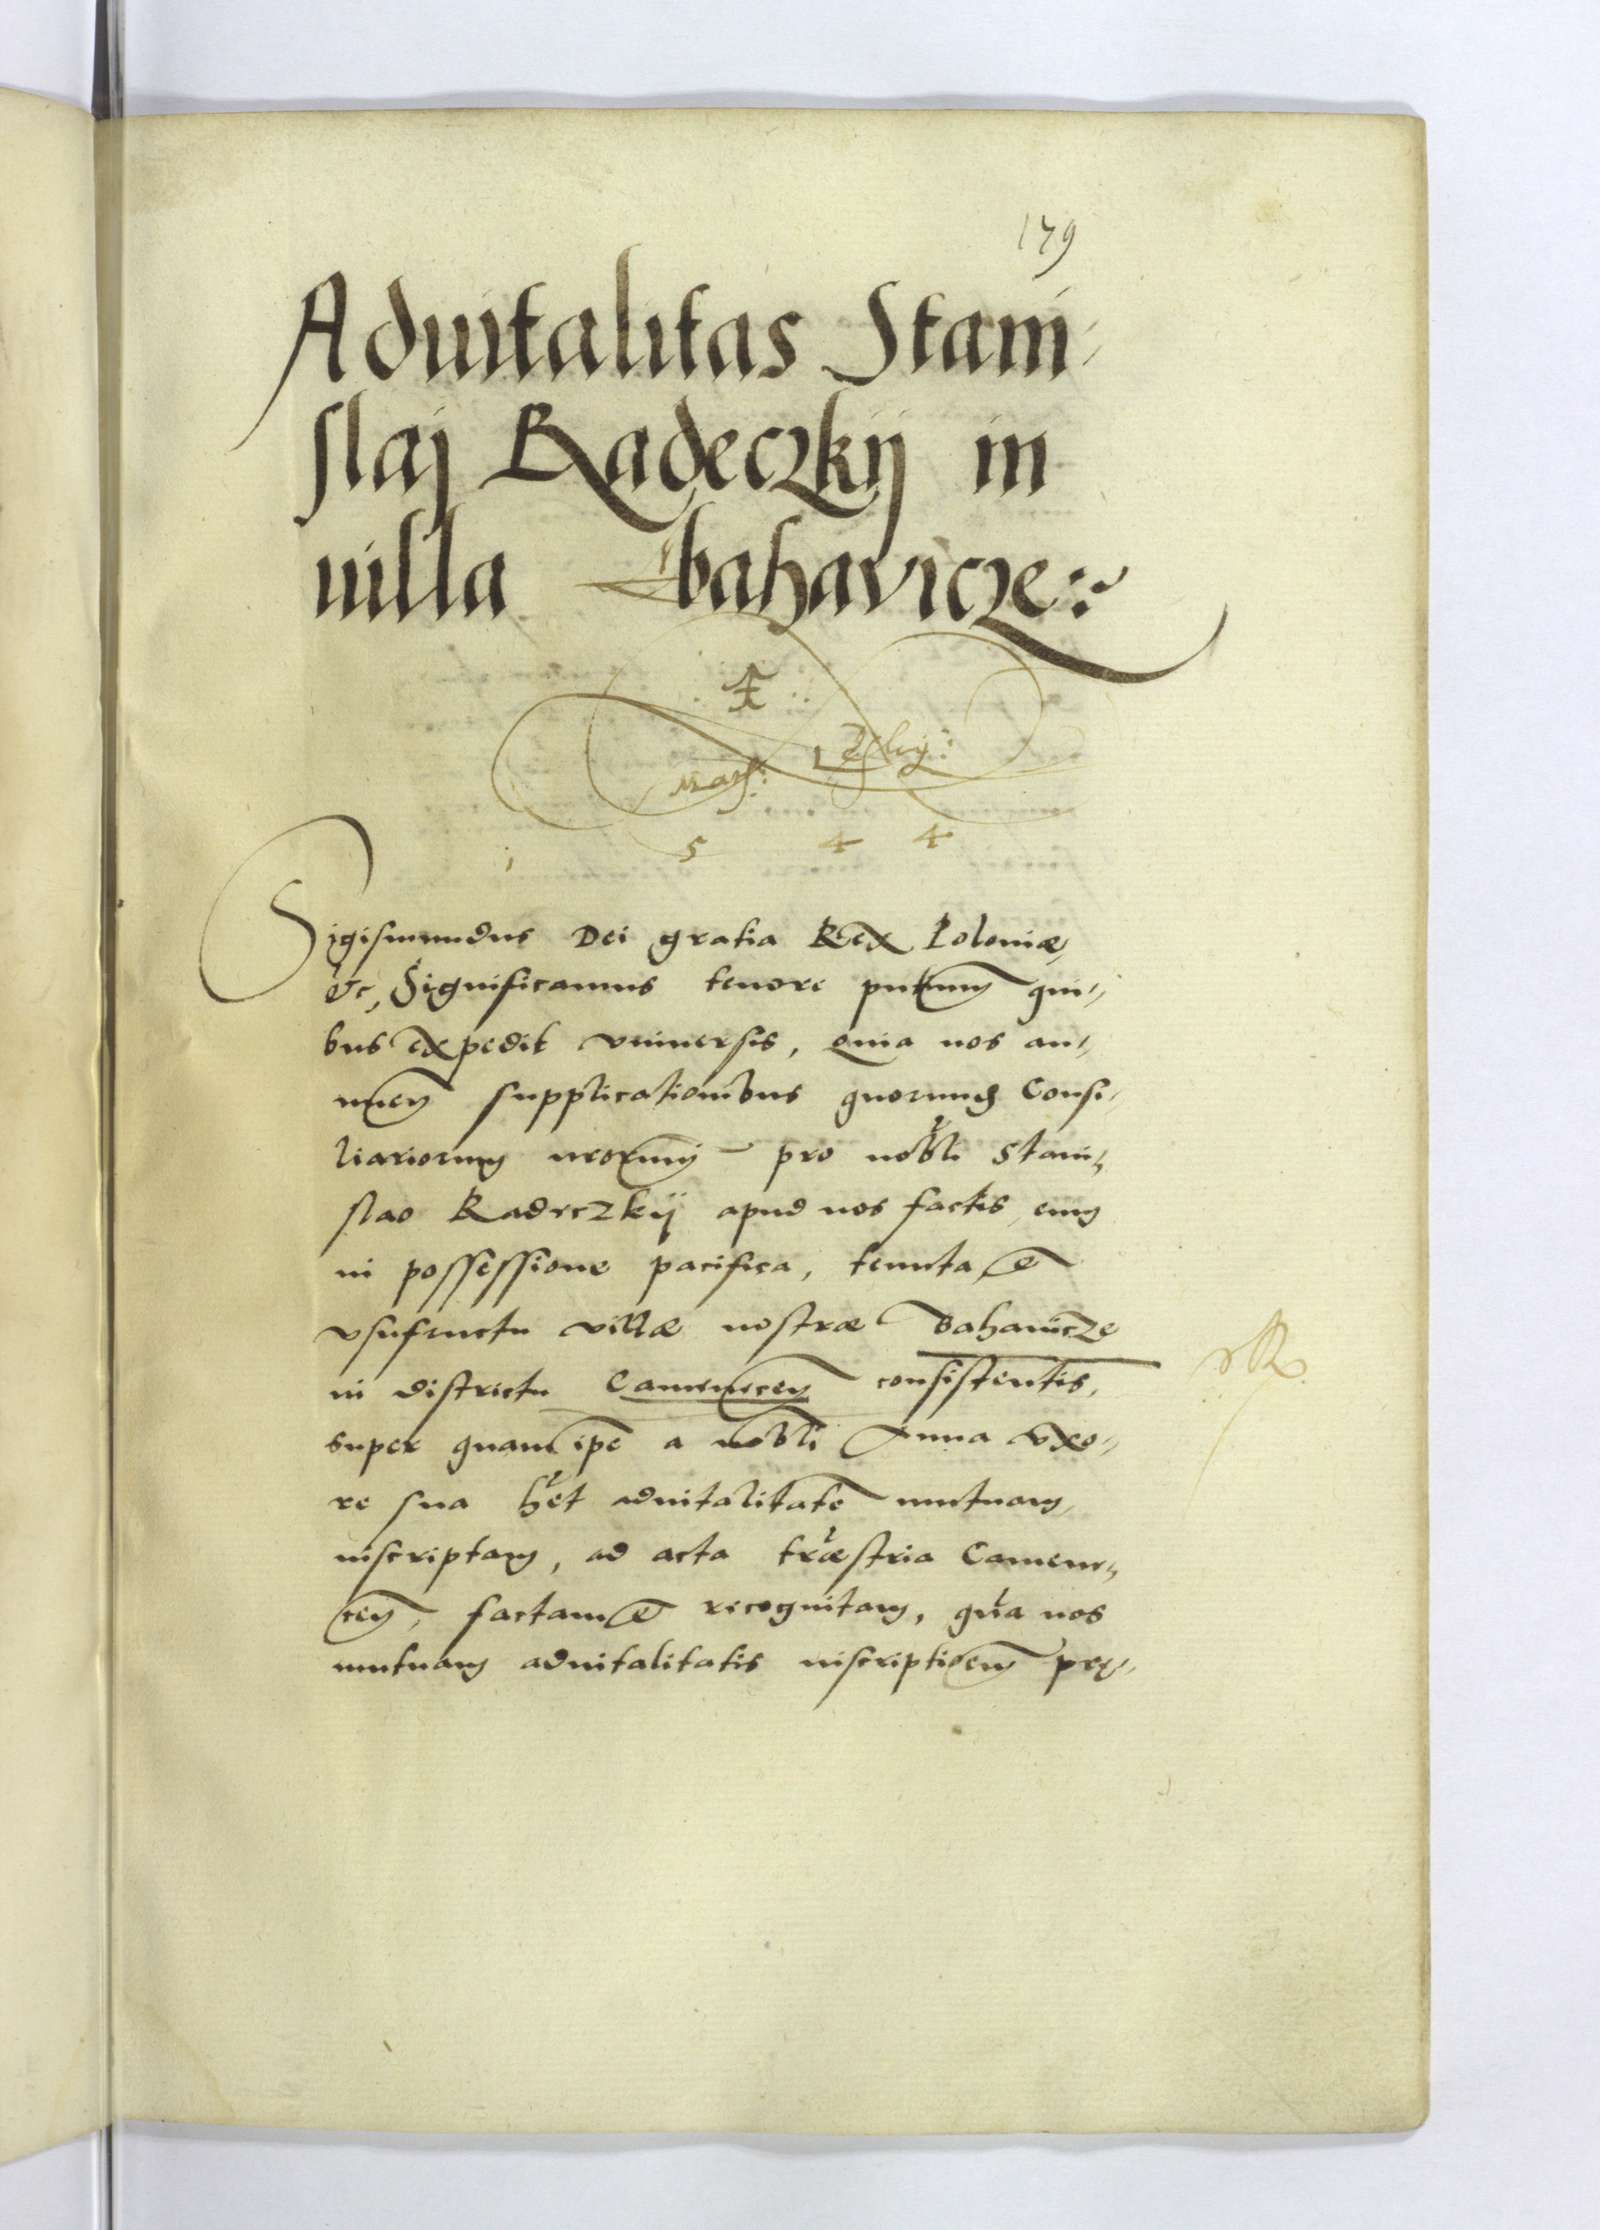 179
Aduitalitas Stani-
slaj Radeczkij in
uilla bahavicze:
5 4 4
Sigismundus Dei gratia Rex Poloniæ,
&c, Significamus tenore pntium qui-
bus expedit vniuersis, Quia nos an-
nuen supplicationibus quorund Consi-
liariorum nrorum pro nobli Stani-
slao Radeczkij apud nos factis, eum
in possessione pacifica, tenuta et
vsufructu villæ nostræ bahauicze
in districtu Camenecen consistentis,
super quam ipe a nobli Anna vxo-
re sua het aduitalitate mutuam
inscriptam, ad acta træstria Camene-
cen, factam et recognitam, qua nos
mutuam aduitalitatis inscriptioem prę-